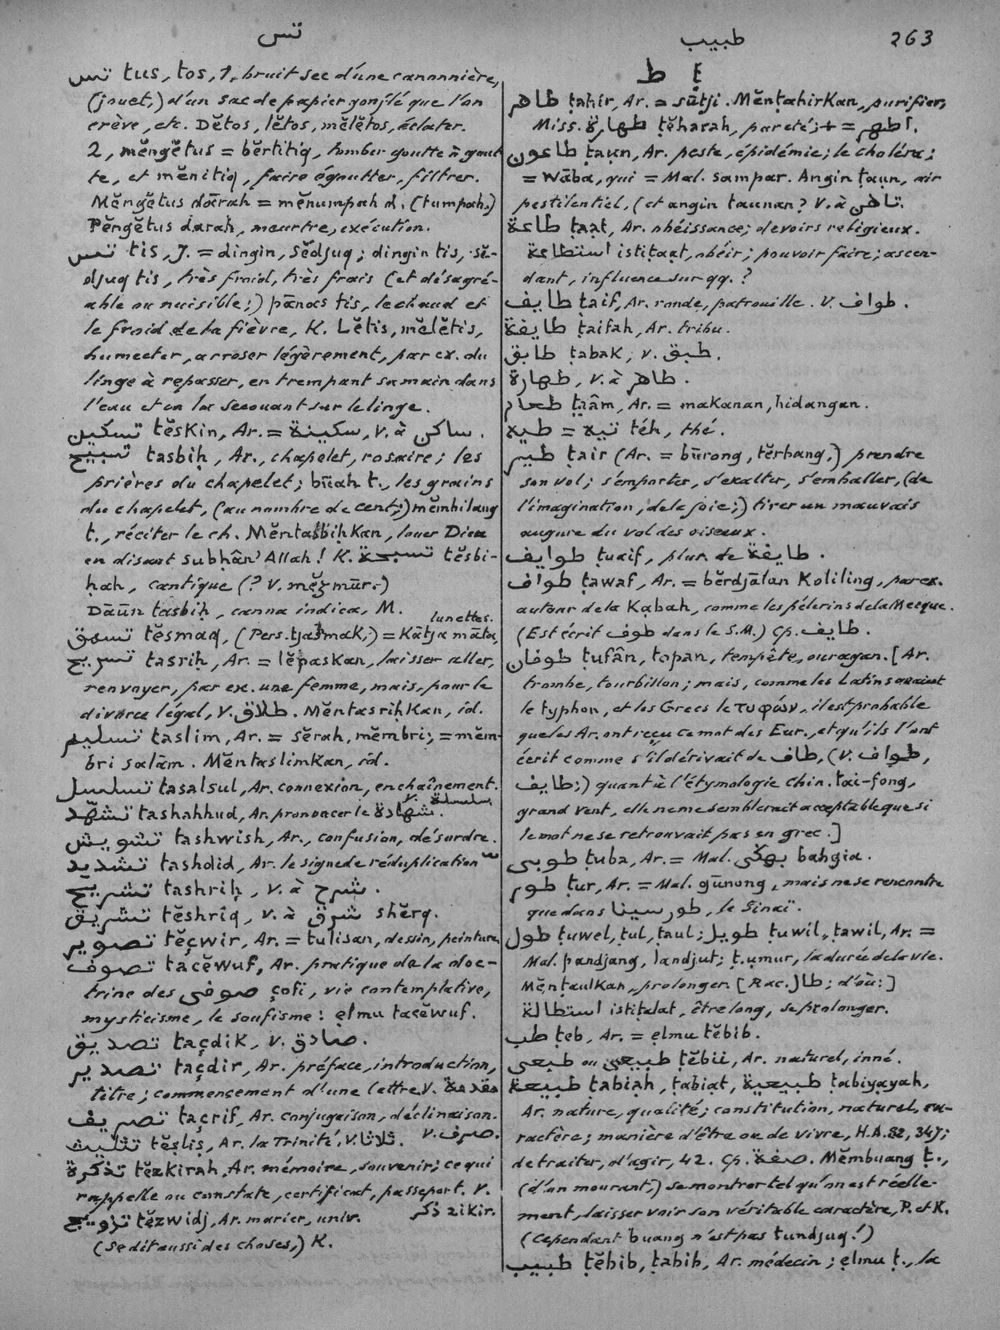 تس
طبيب
263
تس tus, tos, 1, bruit sec d'une canonnière,
(jouet,) d'un sac de papier gonflé que l'on
crève, etc. Dĕtos, lĕtos, mĕlĕtos, éclater.
2, mĕngĕtus = bĕrtitiq, tomber goutte à gout
te, et mĕnitiq, faire égoutter, filtrer.
Mĕngĕtus dārah = mĕnumpah d. (tumpah.)
Pĕngĕtus darah, meurtre, exécution.
تس tis, J. = dingin, sĕdjuq; dingin tis, sĕ-
djuq tis, très froid, très frais (et désagré-
able ou nuisible;) pānas tis, le chaud et
le froid de la fièvre, K. Lĕtis, mĕlĕtis,
humecter, arroser légèrement, par ex. du
linge à repasser, en trempant sa main dans
l'eau et en la secouant sur le linge.
تسكين tĕskin, Ar. = سكينة, v. à ساكن.
تسبيح tasbiḥ, Ar., chapelet, rosaire; les
prières du chapelet; būah t., les grains
du chapelet, (au nombre de cent;) mĕmbilang
t., réciter le ch. Mĕntasbiḥkan, louer Dieu
en disant subhân Allah! K. تسبحة tĕsbi-
ḥah, cantique (? v. mĕzmūr.)
Dāūn tasbiḥ, canna indica, M.
تسمق tĕsmaq, (Pers. tjašmak,) = Kātja māta, lunettes.
تسريح tasriḥ, Ar. = lĕpaskan, laisser aller,
renvoyer, par ex. une femme, mais, pour le
divorce légal, v. طلاق. Mĕntasriḥkan, id.
تسليم taslim, Ar. = sĕrah, mĕmbri; = mĕm-
bri salām. Mĕntaslimkan, id.
تسلسل tasalsul, Ar. connexion, enchaînement. v. سلسلة
تشهّد tashahhud, Ar. prononcer le شهادة.
تشويش tashwish, Ar., confusion, désordre.
تشديد tashdid, Ar. le signe de réduplication ّ
تشريح tashriḥ, v. à شرح.
تشريق tĕshrîq, v. à شرق shĕrq.
تصوير tĕçwir, Ar. = tulisan, dessin, peinture.
تصوف taçĕwuf, Ar. pratique de la doc-
trine des صوفى çofi, vie contemplative,
mysticisme, le soufisme: ęlmu taçĕwuf.
تصديق taçdik, v. صادق.
تصدير taçdir, Ar. préface, introduction,
titre; commencement d'une lettre v. مقدمة
تصريف taçrif, Ar. conjugaison, déclinaison. v. صرف.
تثليث tĕṣliṣ, Ar. la Trinité, v. ثلاثا.
تذكرة tĕzkirah, Ar. mémoire, souvenir; ce qui
rappelle ou constate, certificat, passeport. v.
ذكر zikir.
تزويج tĕzwidj, Ar. marier, unir.
(Se dit aussi des choses,) K.
ط ṭ
طاهر ṭahir, Ar. = sūtji. Mĕnṭahirkan, purifier,
Miss. طهارة ṭĕharah, pureté; + = اطهر.
طاعون ṭaun, Ar. peste, épidémie; le choléra;
= wāba, qui = Mal. sampar. Angin ṭaun, air
pestilentiel, (et angin taunan? v. à تاهن.
طاعة ṭaạt, Ar. obéissance; devoirs religieux.
استطاعة istiṭaạt, obéir; pouvoir faire; ascen-
dant, influence sur qq. ?
طايف ṭaif, Ar. ronde, patrouille. v. طواف.
طايفة ṭaifah, Ar. tribu.
طابق ṭabak, v. طبق.
طهارة, v. à طاهر.
طعام ṭạâm, Ar. = makanan, hidangan.
طيه = تيه téh, thé.
طير ṭair (Ar. = būrong, tĕrbang,) prendre
son vol; s'emporter, s'exalter, s'emballer, (de
l'imagination, de la joie;) tirer un mauvais
augure du vol des oiseaux.
طوايف ṭuaif, plur. de طايفة.
طواف ṭawaf, Ar. = bĕrdjālan koliling, par ex.
autour de la Kabah, comme les pèlerins de la Mecque.
(Est écrit طوف dans le S.M.) Cp. طايف.
طوفان ṭufân, ṭopan, tempête, ouragan. [Ar.
trombe, tourbillon; mais, comme les Latins avaient
le typhon, et les Grecs le τυφών, il est probable
que les Ar. ont reçu ce mot des Eur., et qu'ils l'ont
écrit comme s'il dérivait de طاف, (v. طواف,
طايف;) quant à l'étymologie chin. tai-fong,
grand vent, elle ne me semblerait acceptable que si
le mot ne se retrouvait pas en grec.]
طوبى ṭuba, Ar. = Mal. بهڬى bahgia.
طور ṭur, Ar. = Mal. gūnong, mais ne se rencontre
que dans طور سينا, le Sinaï.
طول ṭuwel, ṭul, ṭaul; طويل ṭuwil, ṭawil, Ar. =
Mal. pandjang, landjut; ṭ. ụmur, la durée de la vie.
Mĕnṭaulkan, prolonger. [Rac. طال; d'où:]
استطالة istiṭalat, être long, se prolonger.
طب ṭeb, Ar. = ęlmu ṭĕbib.
طبعى ou طبيعى ṭĕbiï, Ar. naturel, inné.
طبيعة ṭabiạh, ṭabiạt, طبيعية ṭabiyạyah,
Ar. nature, qualité; constitution, naturel, ca-
ractère; manière d'être ou de vivre, H.A. 82, 347;
de traiter, d'agir, 42. Cp. صفة. Mĕmbuang ṭ.,
(d'un mourant,) se montrer tel qu'on est réelle-
ment, laisser voir son véritable caractère, P. et K.
(Cependant buang n'est pas tundjuq!)
طبيب ṭĕbib, ṭabib, Ar. médecin; ęlmu ṭ., la